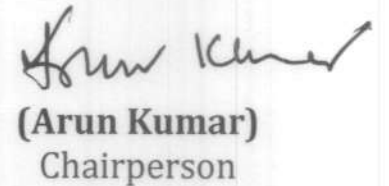 Arun Kumar
(Arun Kumar)
Chairperson